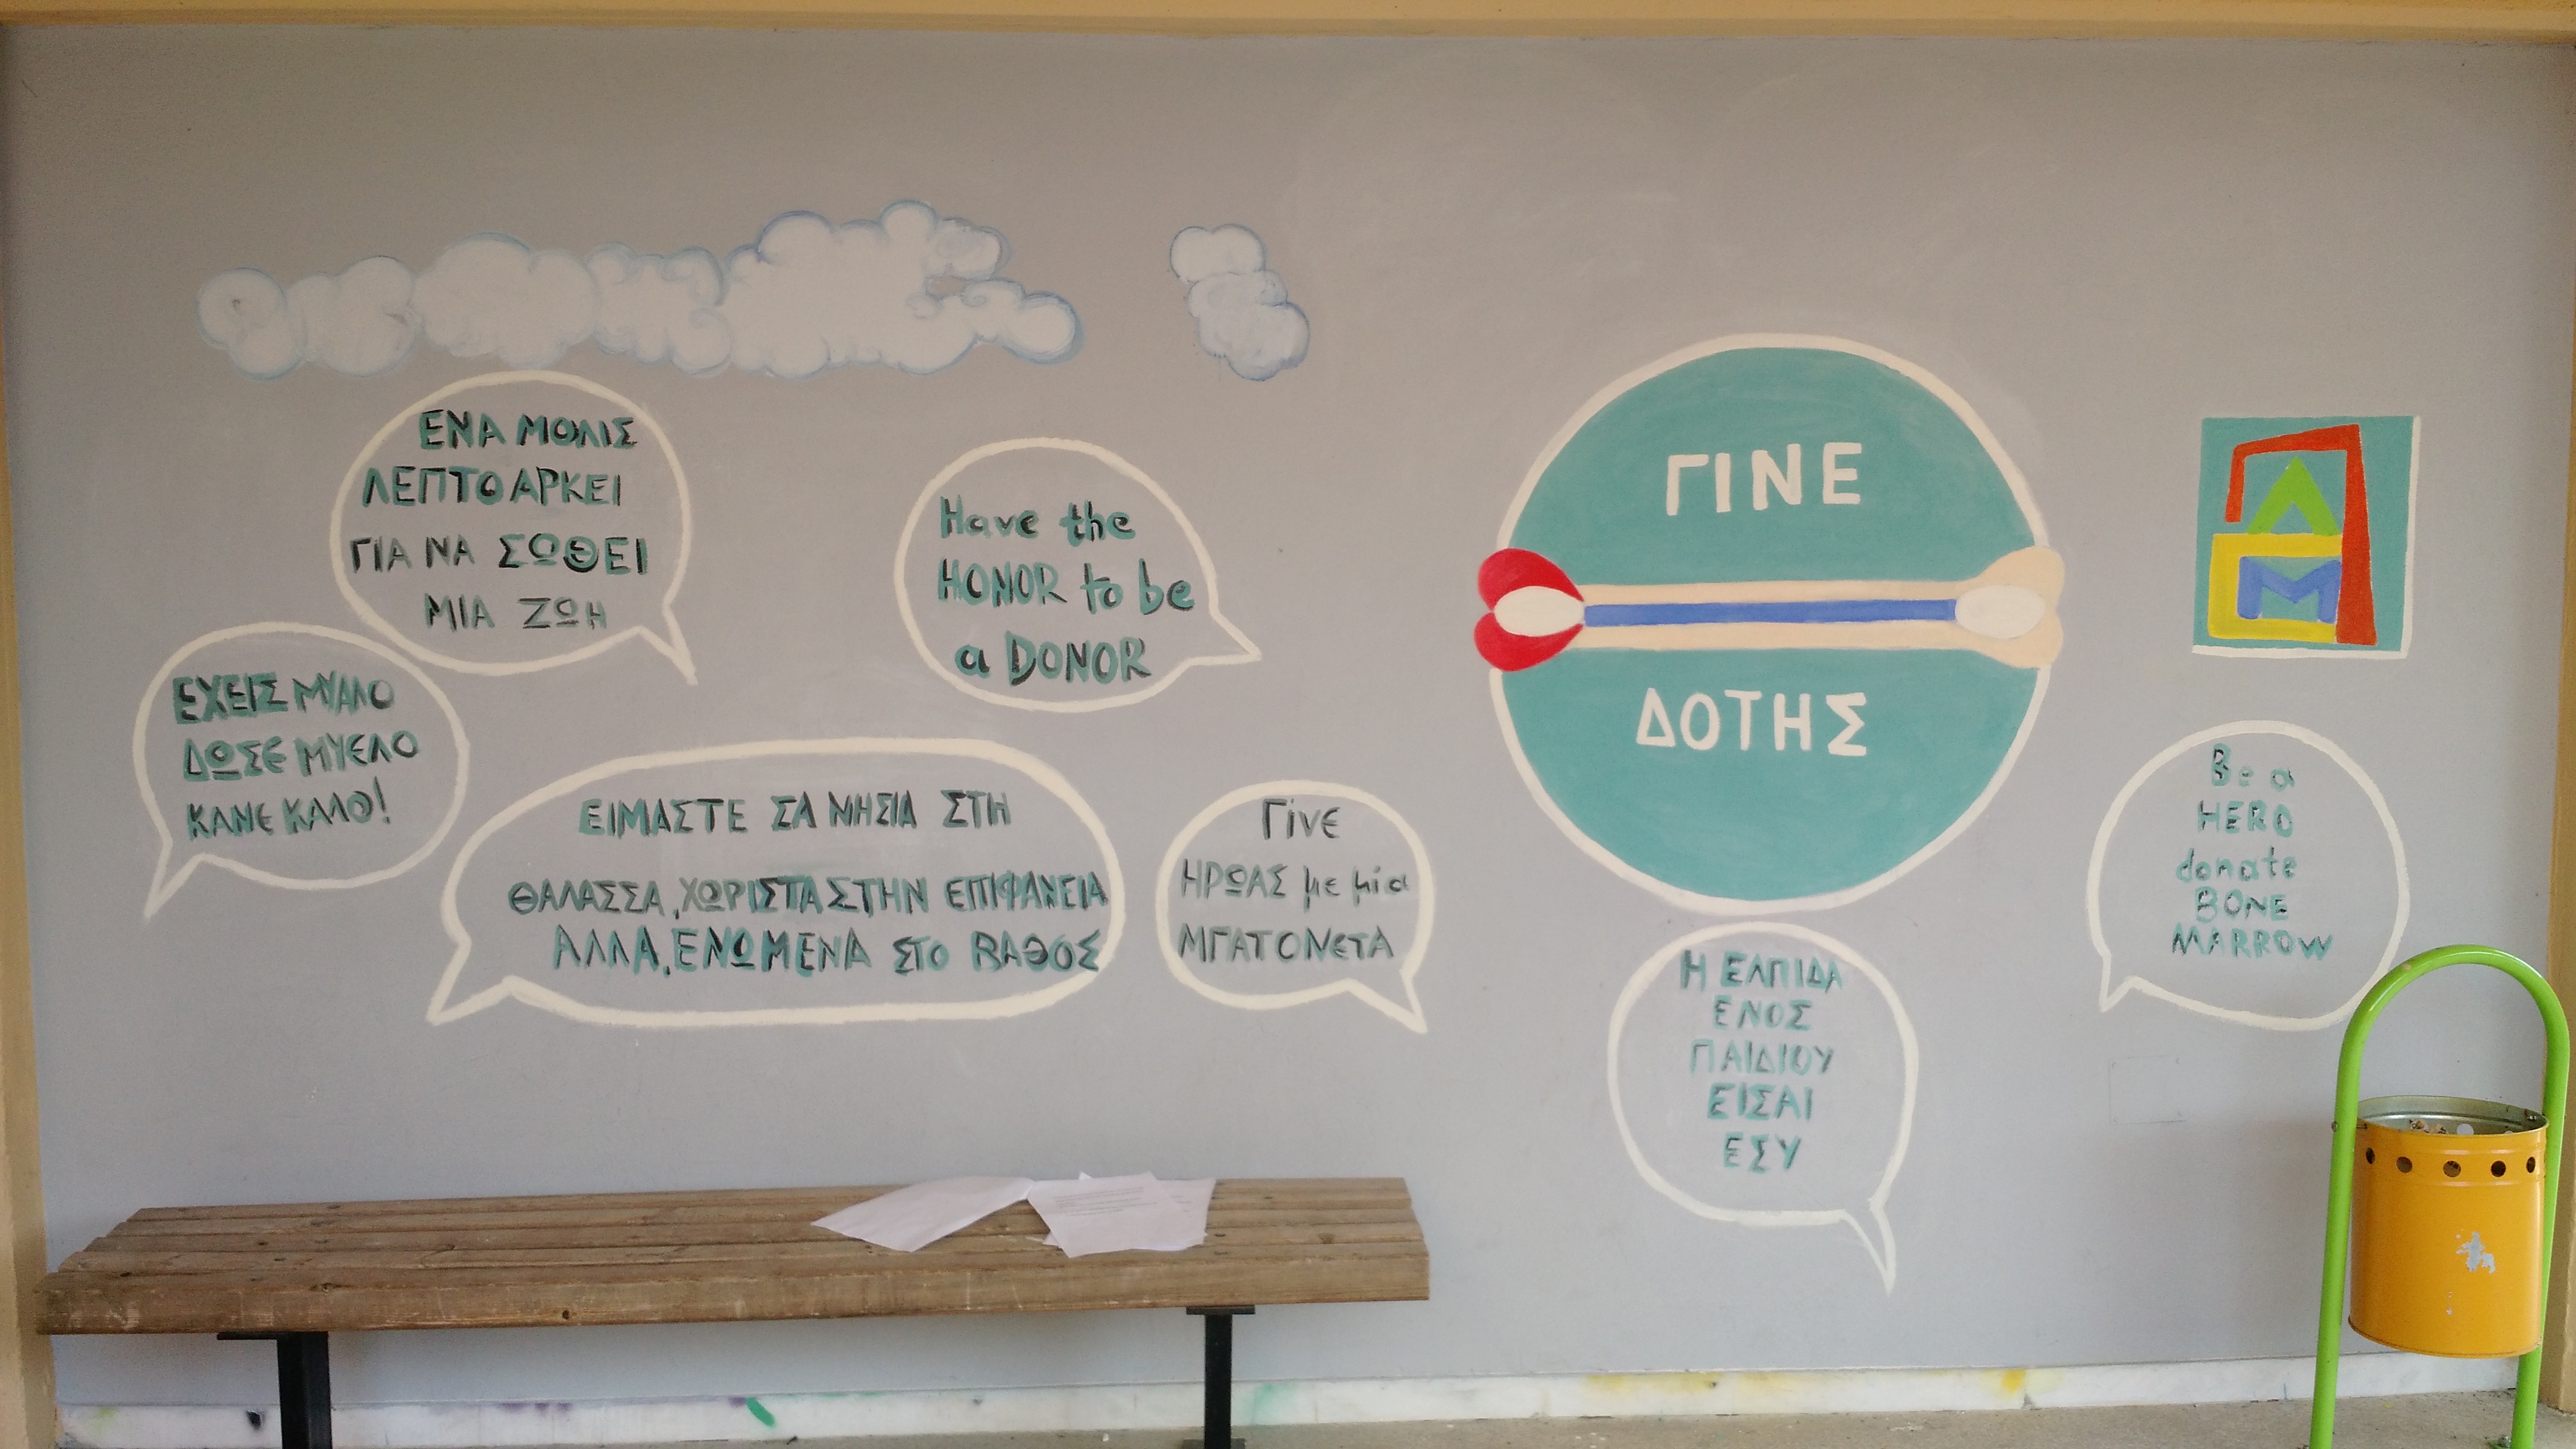 ΕΝΑ ΜΟΛΙΣ
ΛΕΠΤΟ ΑΡΚΕΙ
ΓΙΑ ΝΑ ΣΩΘΕΙ
ΜΙΑ ΖΩΗ
ΕΧΕΙΣ ΜΥΑΛΟ
ΔΩΣΕ ΜΥΕΛΟ
ΚΑΝΕ ΚΑΛΟ!
Have the
HONOR to be
a DONOR
ΕΙΜΑΣΤΕ ΣΑ ΝΗΣΙΑ ΣΤΗ
ΘΑΛΑΣΣΑ, ΧΩΡΙΣΤΑ ΣΤΗΝ ΕΠΙΦΑΝΕΙΑ
ΑΛΛΑ, ΕΝΩΜΕΝΑ ΣΤΟ ΒΑΘΟΣ
Γίνε
ΗΡΩΑΣ με μία
ΜΠΑΤΟΝεΤΑ
ΓΙΝΕ
ΔΟΤΗΣ
Η ΕΛΠΙΔΑ
ΕΝΟΣ
ΠΑΙΔΙΟΥ
ΕΙΣΑΙ
ΕΣΥ
Be a
HERO
donate
BONE
MARROW